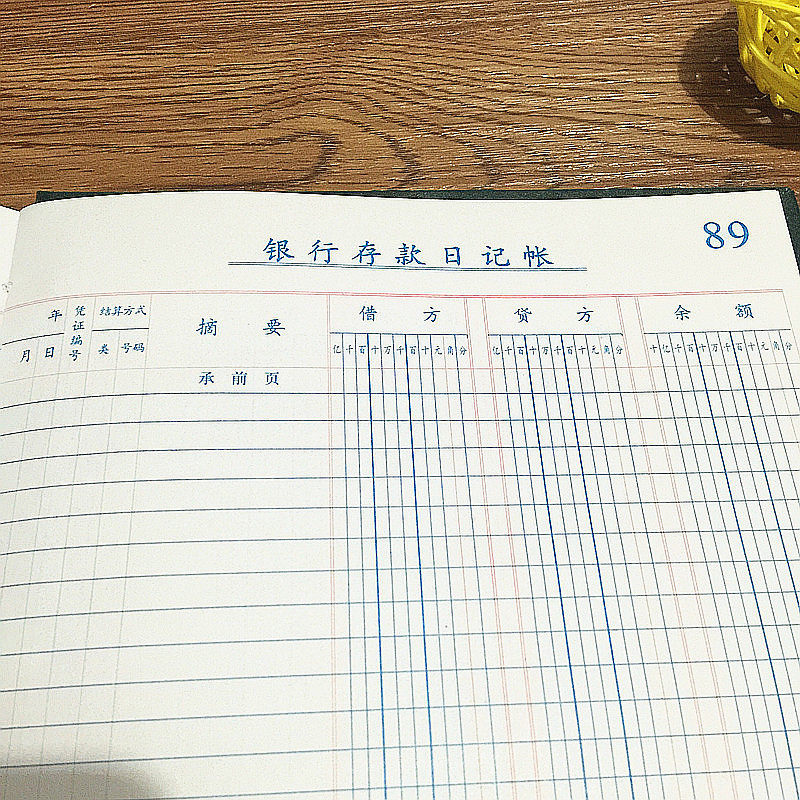 89
银行存款日记帐
年 凭证编号 结算方式 摘要 借方 贷方 余额
月 日 类 号码 亿千百十万千百十元角分 亿千百十万千百十元角分 十亿千百十万千百十元角分
承前页